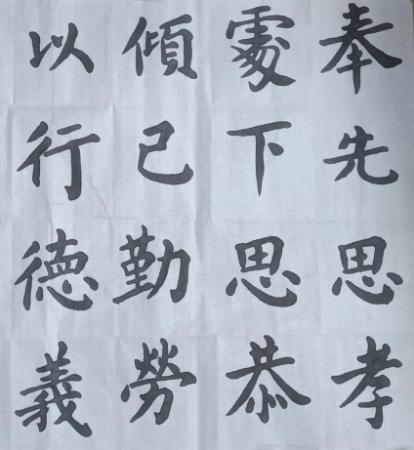 奉先思孝
處下思恭
傾己勤勞
以行德義